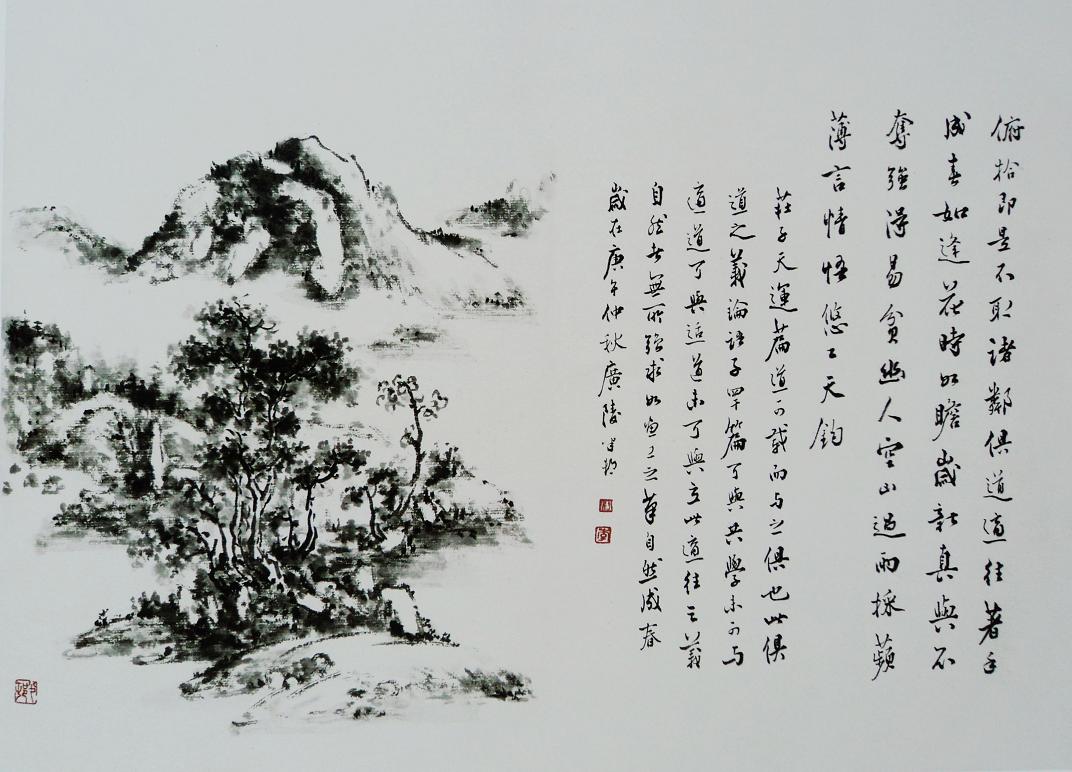 俯拾即是不取諸鄰俱道適往著手
成春如逢花時如瞻歲新真與不
奪強得易貧幽人空山過雨採蘋
薄言情悟悠〻天鈞
莊子天運篇道可載而与之俱也此俱
道之義論語子罕篇可與共學未可与
適道可與適道未可與立此適往之義
自然者無所強求如畫工之筆自然成春
歲在庚午仲秋廣陵